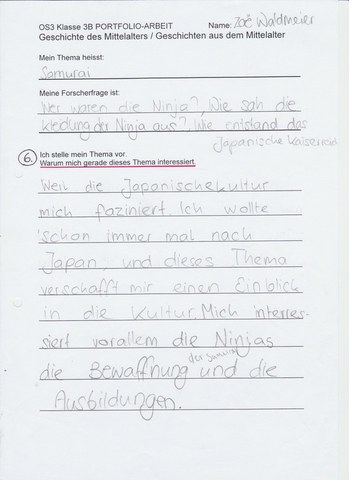 OS3 Klasse 3B PORTFOLIO-ARBEIT Name: Zoë Waldmeier
Geschichte des Mittelalters / Geschichten aus dem Mittelalter
Mein Thema heisst:
Samurai
Meine Forscherfrage ist:
Wer waren die Ninja?, Wie sah die
kleidung der Ninja aus?, Wie entstand das
Japanische Kaiserreich
6. Ich stelle mein Thema vor.
Warum mich gerade dieses Thema interessiert.
Weil die Japanischekultur
mich faziniert. Ich wollte
schon immer mal nach
Japan, und dieses Thema
verschafft mir einen Einblick
in die Kultur. Mich interes-
siert vorallem die Ninjas
die Bewaffnung der Samurai und die
Ausbildungen.